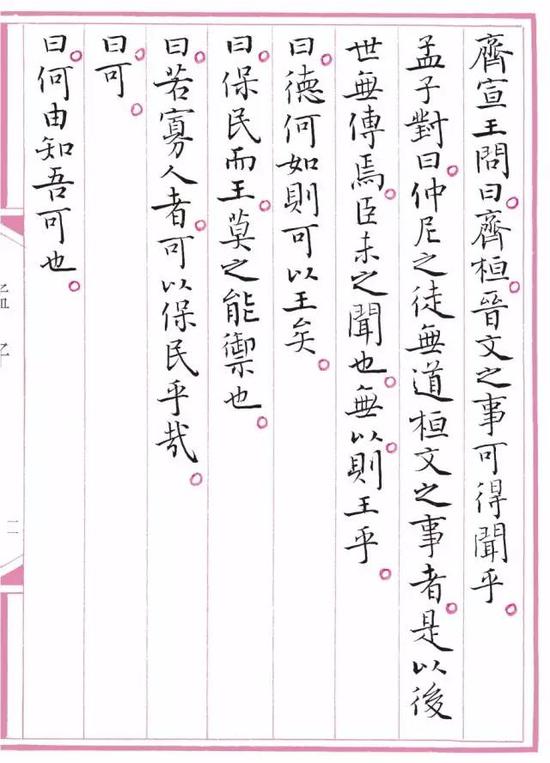 齊宣王問曰。齊桓。晉文之事可得聞乎。
孟子對曰。仲尼之徒無道桓文之事者。是以後
世無傳焉。臣未之聞也。無以。則王乎。
曰。德何如則可以王矣。
曰。保民而王。莫之能禦也。
曰。若寡人者。可以保民乎哉。
曰。可。
曰。何由知吾可也。
孟子
二